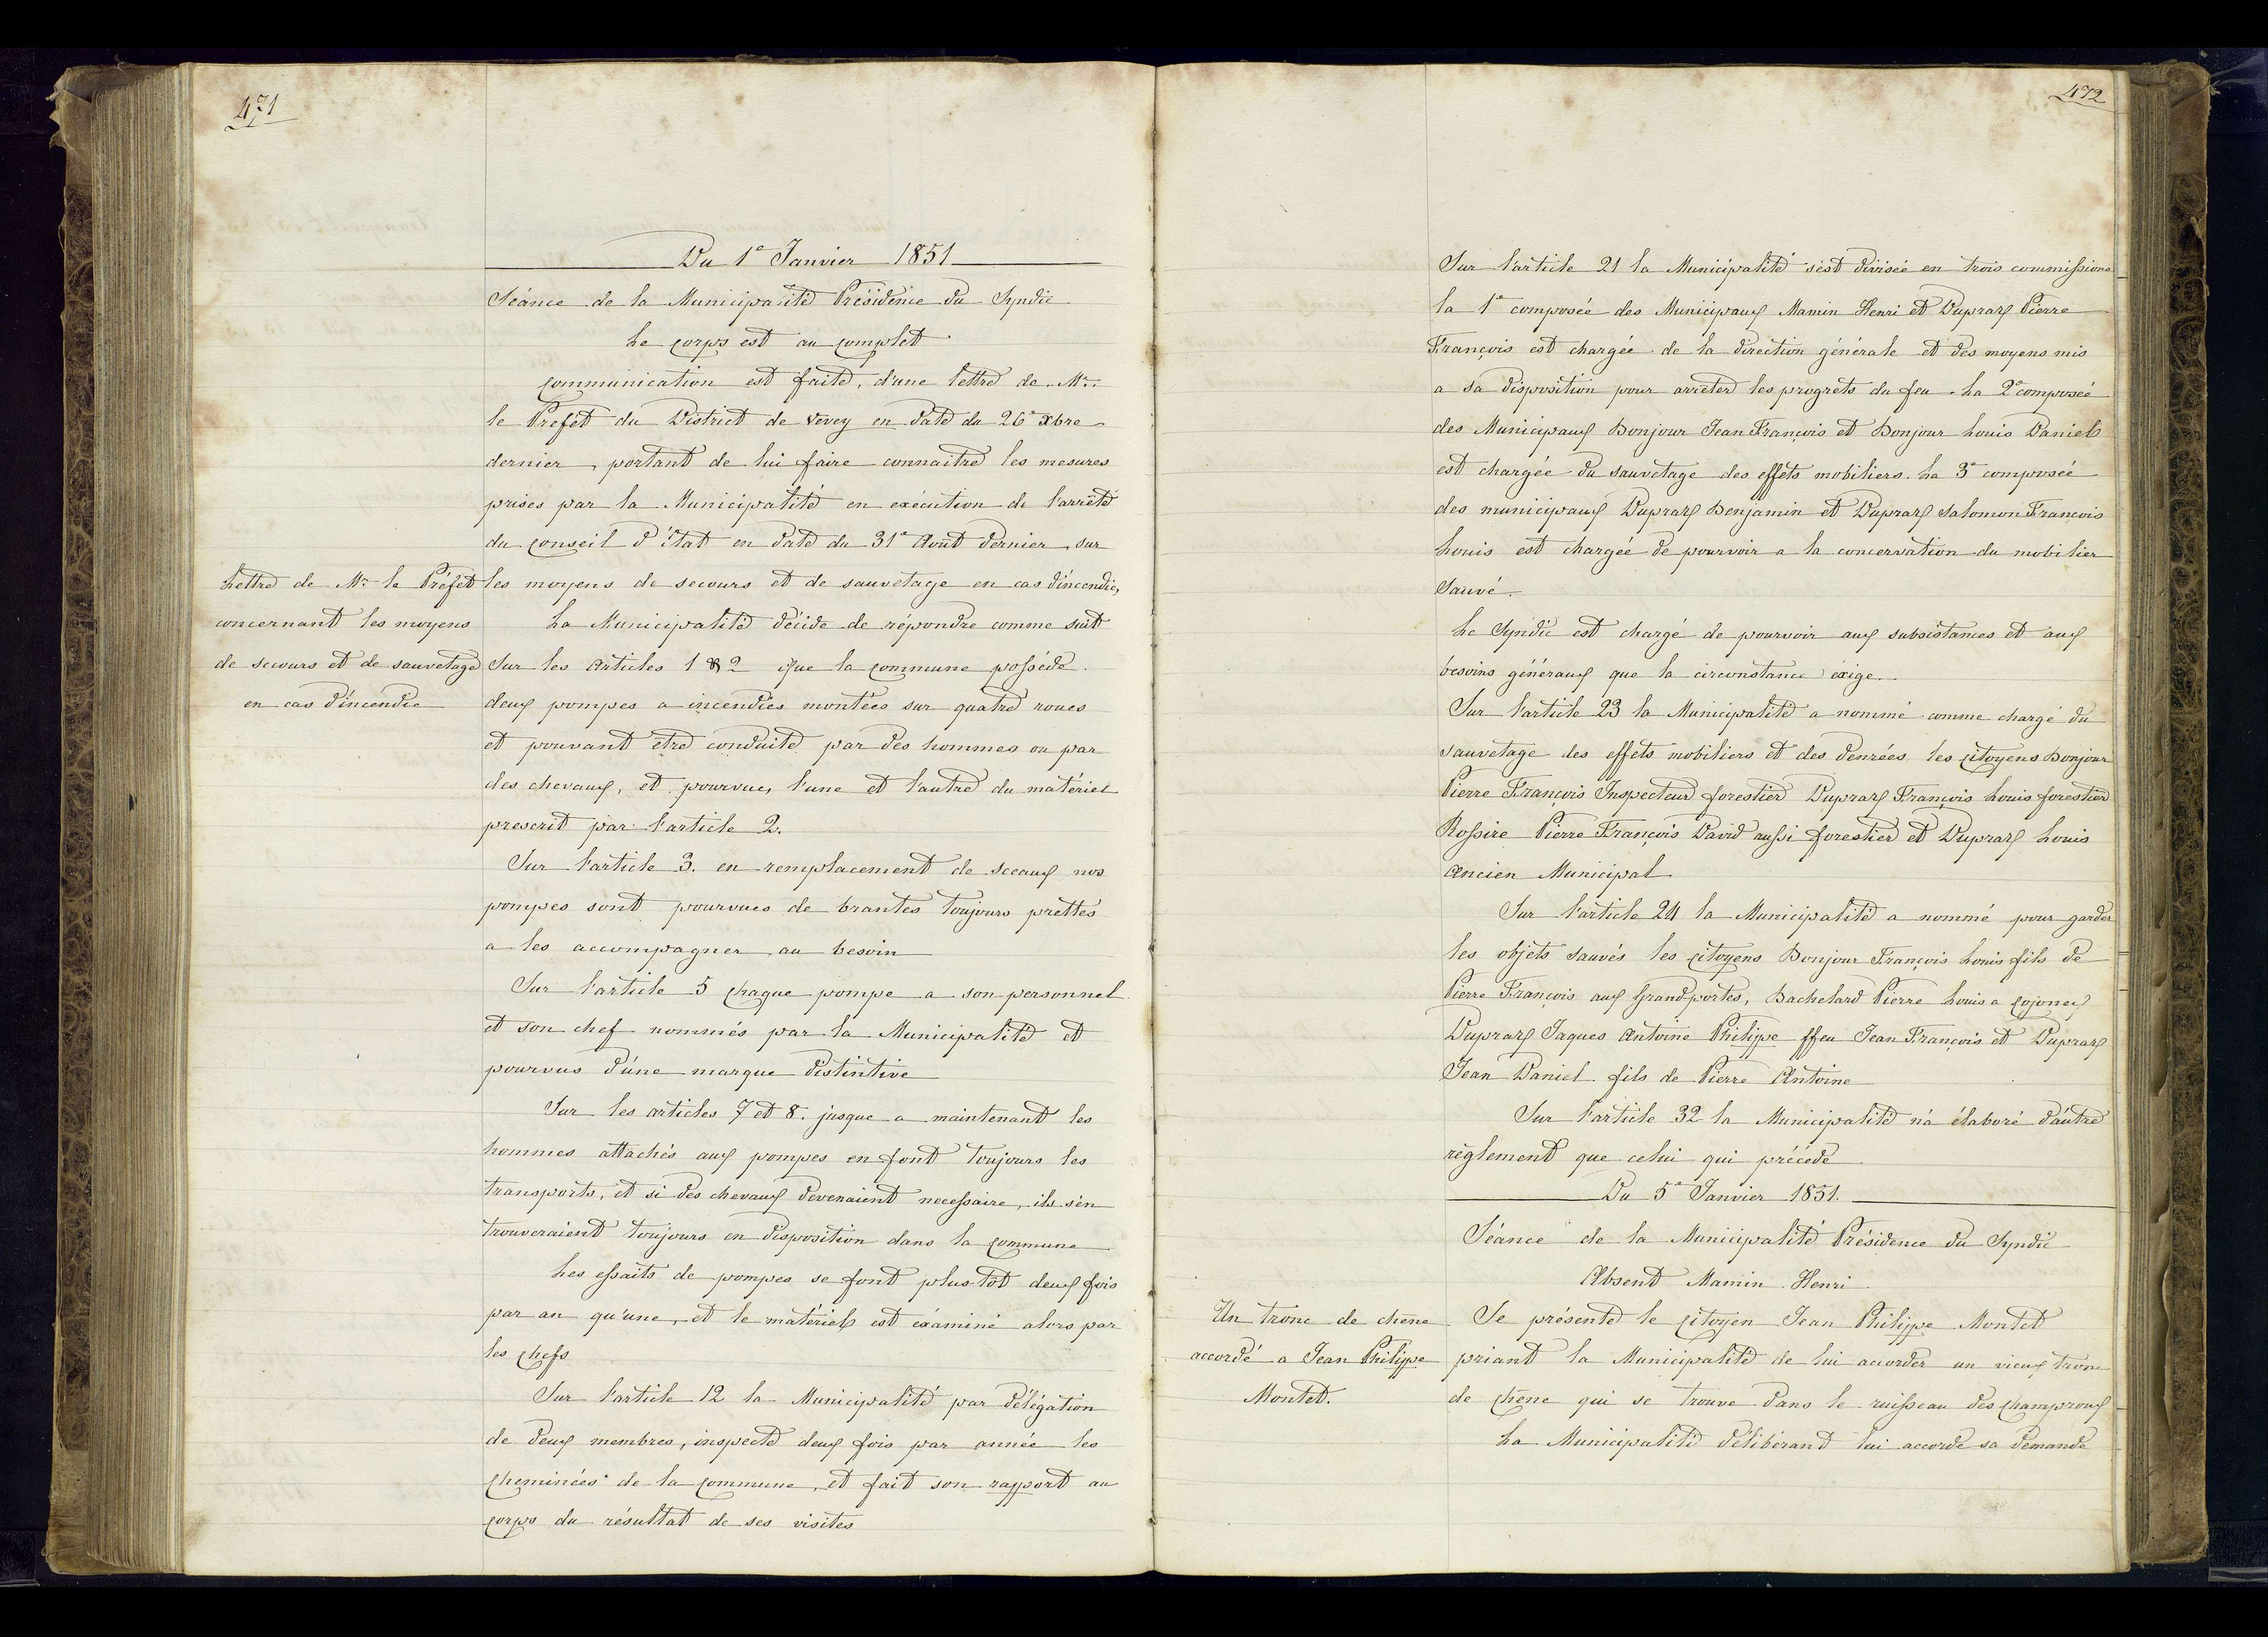 471
Du 1e Janvier 1851
Séance de la Municipalité Présidence du Syndic
Le corps est au complet
communication est faite, d'une lettre de Mr.
le Prefêt du District de Vevey en date du 26e Xbre
dernier, portant de lui faire connaitre les mesures
prises par la Municipalité en exécution de l'arrêté
du conseil d'état en date du 31e Août dernier, sur
Lettre de Mr. le Préfêt
concernant les moyens
de secours et de sauvetage
en cas d'incendie
les moyens de secours et de sauvetage en cas d'incendie,
La Municipalité décide de répondre comme suit
Sur les articles 1 & 2 que la commune possède
deux pompes a incendies montées sur quatre roues
et pouvant être conduite par des hommes ou par
des chevaux, et pourvues l'une et l'autre du matériel
prescrit par l'article 2.
Sur l'article 3. en remplacement de sceaux nos
pompes sont pourvues de brantes toujours prettés
a les accompagner au besoin
Sur l'article 5 chaque pompe a son personnel
et son chef nommés par la Municipalité et
pourvus d'une marque distintive
Sur les articles 7 et 8. jusque a maintenant les
hommes attachés aux pompes en font toujours les
transports, et si des chevaux devenaient necessaire, ils s'en
trouveraient toujours en disposition dans la commune
Les essaits de pompes se font plus-tôt deux fois
par an qu'une, et le matériels est éxaminé alors par
les chefs
Sur l'article 12 la Municipalité par délégation
de deux membres, inspecte deux fois par année les
cheminées de la commune, et fait son rapport au
corps du résultat de ses visites
472
Sur l'article 21 la Municipalité s'est divisée en trois commissions
la 1e composée des Municipaux Mamin Henri et Dupraz Pierre
François est chargée de la direction générale et des moyens mis
a sa disposition pour arrêter les progrets du feu. La 2e composée
des Municipaux Bonjour Jean François et Bonjour Louis Daniel
est chargée du sauvetage des effets mobiliers. La 3e composée
des municipaux Dupraz Benjamin et Dupraz Salomon François
Louis est chargée de pourvoir a la concervation du mobilier
Sauvé.
Le Syndic est chargé de pourvoir aux subsistances et aux
besoins généraux que la circonstance éxige.
Sur l'article 23 la Municipalité a nommé comme chargé du
sauvetage des effets mobiliers et des denrées les citoyens Bonjour
Pierre François Inspecteur forestier Dupraz François Louis forestier
Rossire Pierre François David aussi forestier et Dupraz Louis
Ancien Municipal
Sur l'article 24 la Municipalité a nommé pour garder
les objets sauvés les citoyens Bonjour François Louis fils de
Pierre François aux Grandportes, Bachelard Pierre Louis a Cojonex
Dupraz Jaques Antoine Philippe ffeu Jean François et Dupraz
Jean Daniel fils de Pierre Antoine
Sur l'article 32 la Municipalité n'a élaboré d'autre
règlement que celui qui précéde
Du 5e Janvier 1851.
Séance de la Municipalité Présidence du Syndic
Absent Mamin Henri
Un tronc de chêne
accordé a Jean Philippe
Montet.
Se présente le citoyen Jean Philippe Montet
priant la Municipalité de lui accorder un vieux tronc
de chêne qui se trouve dans le ruisseau des Champroux
La Municipalité délibérant lui accorde sa demande